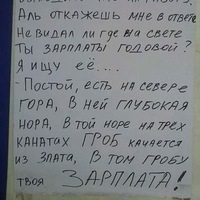 Аль откажешь мне в ответе
Не видал ли где на свете
Ты зарплаты годовой?
Я ищу её....
- Постой, есть на севере
гора, в ней глубокая
нора, в той норе на трёх
канатах ГРОБ качается
из злата, в том гробу
твоя ЗАРПЛАТА!